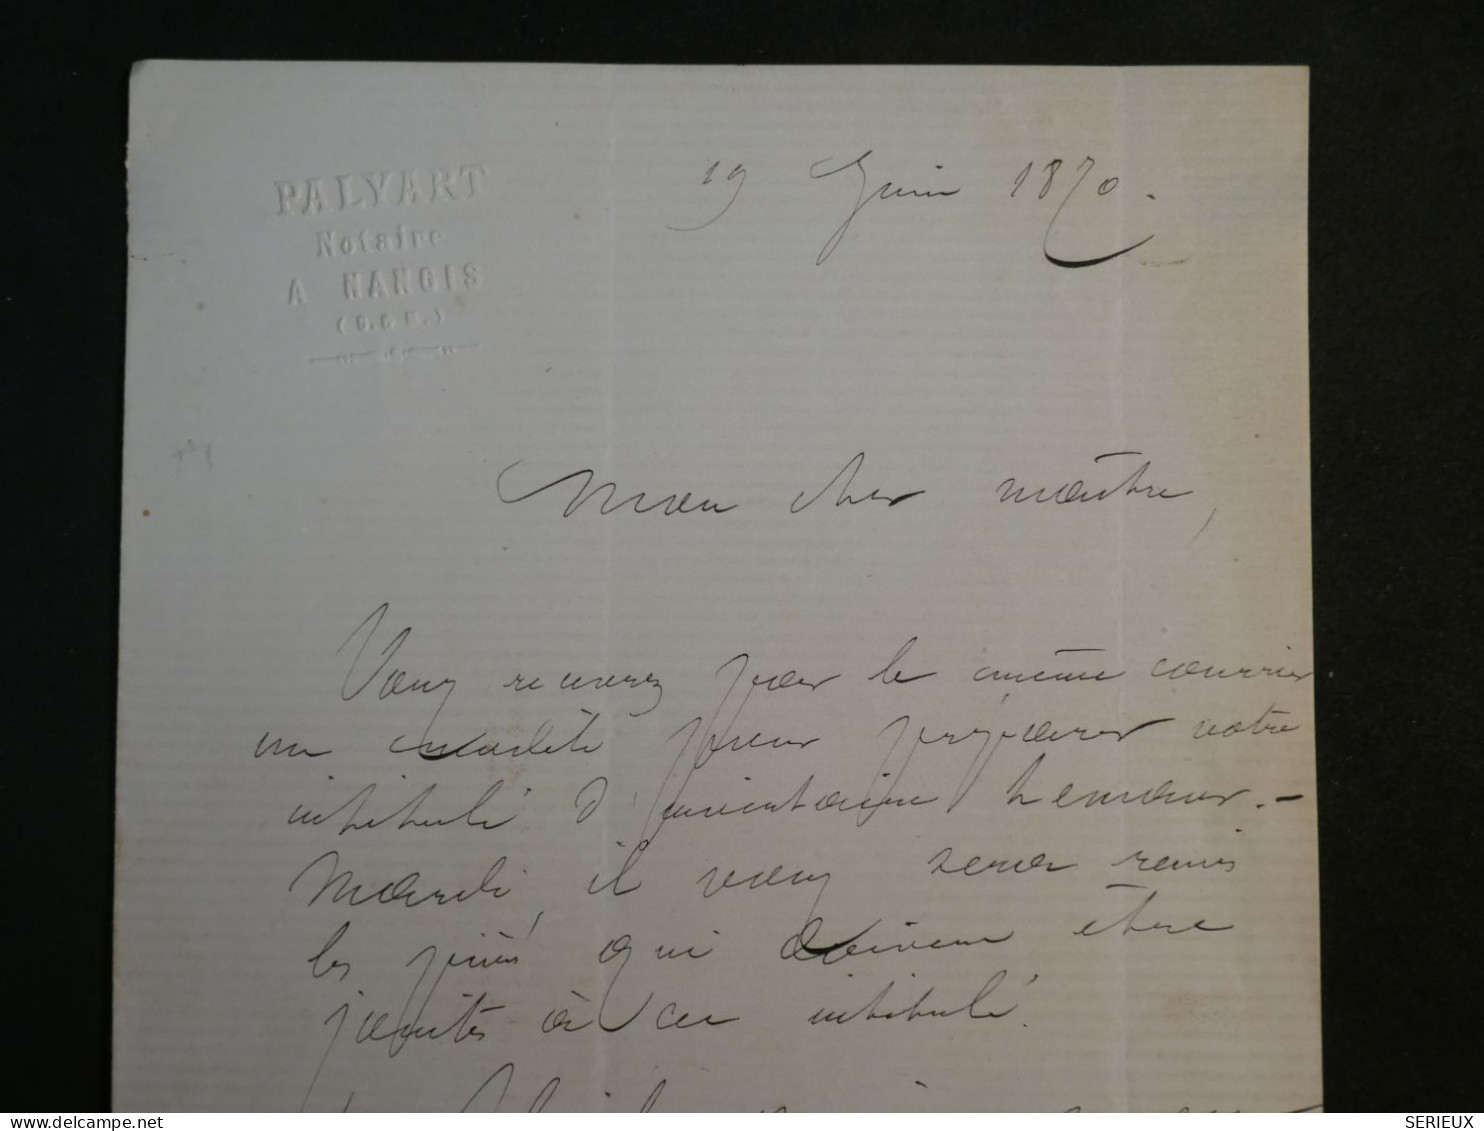 PALYART
Notaire
A NANGIS
(S. & M.)
19 Juin 1870.
Mon cher maître,
Vous recevrez par le même courrier
un modèle pour préparer votre
intitulé d'inventaire
Mardi, il vous sera remis
les pièces qui doivent être
jointes à cet intitulé.
SERIEUX